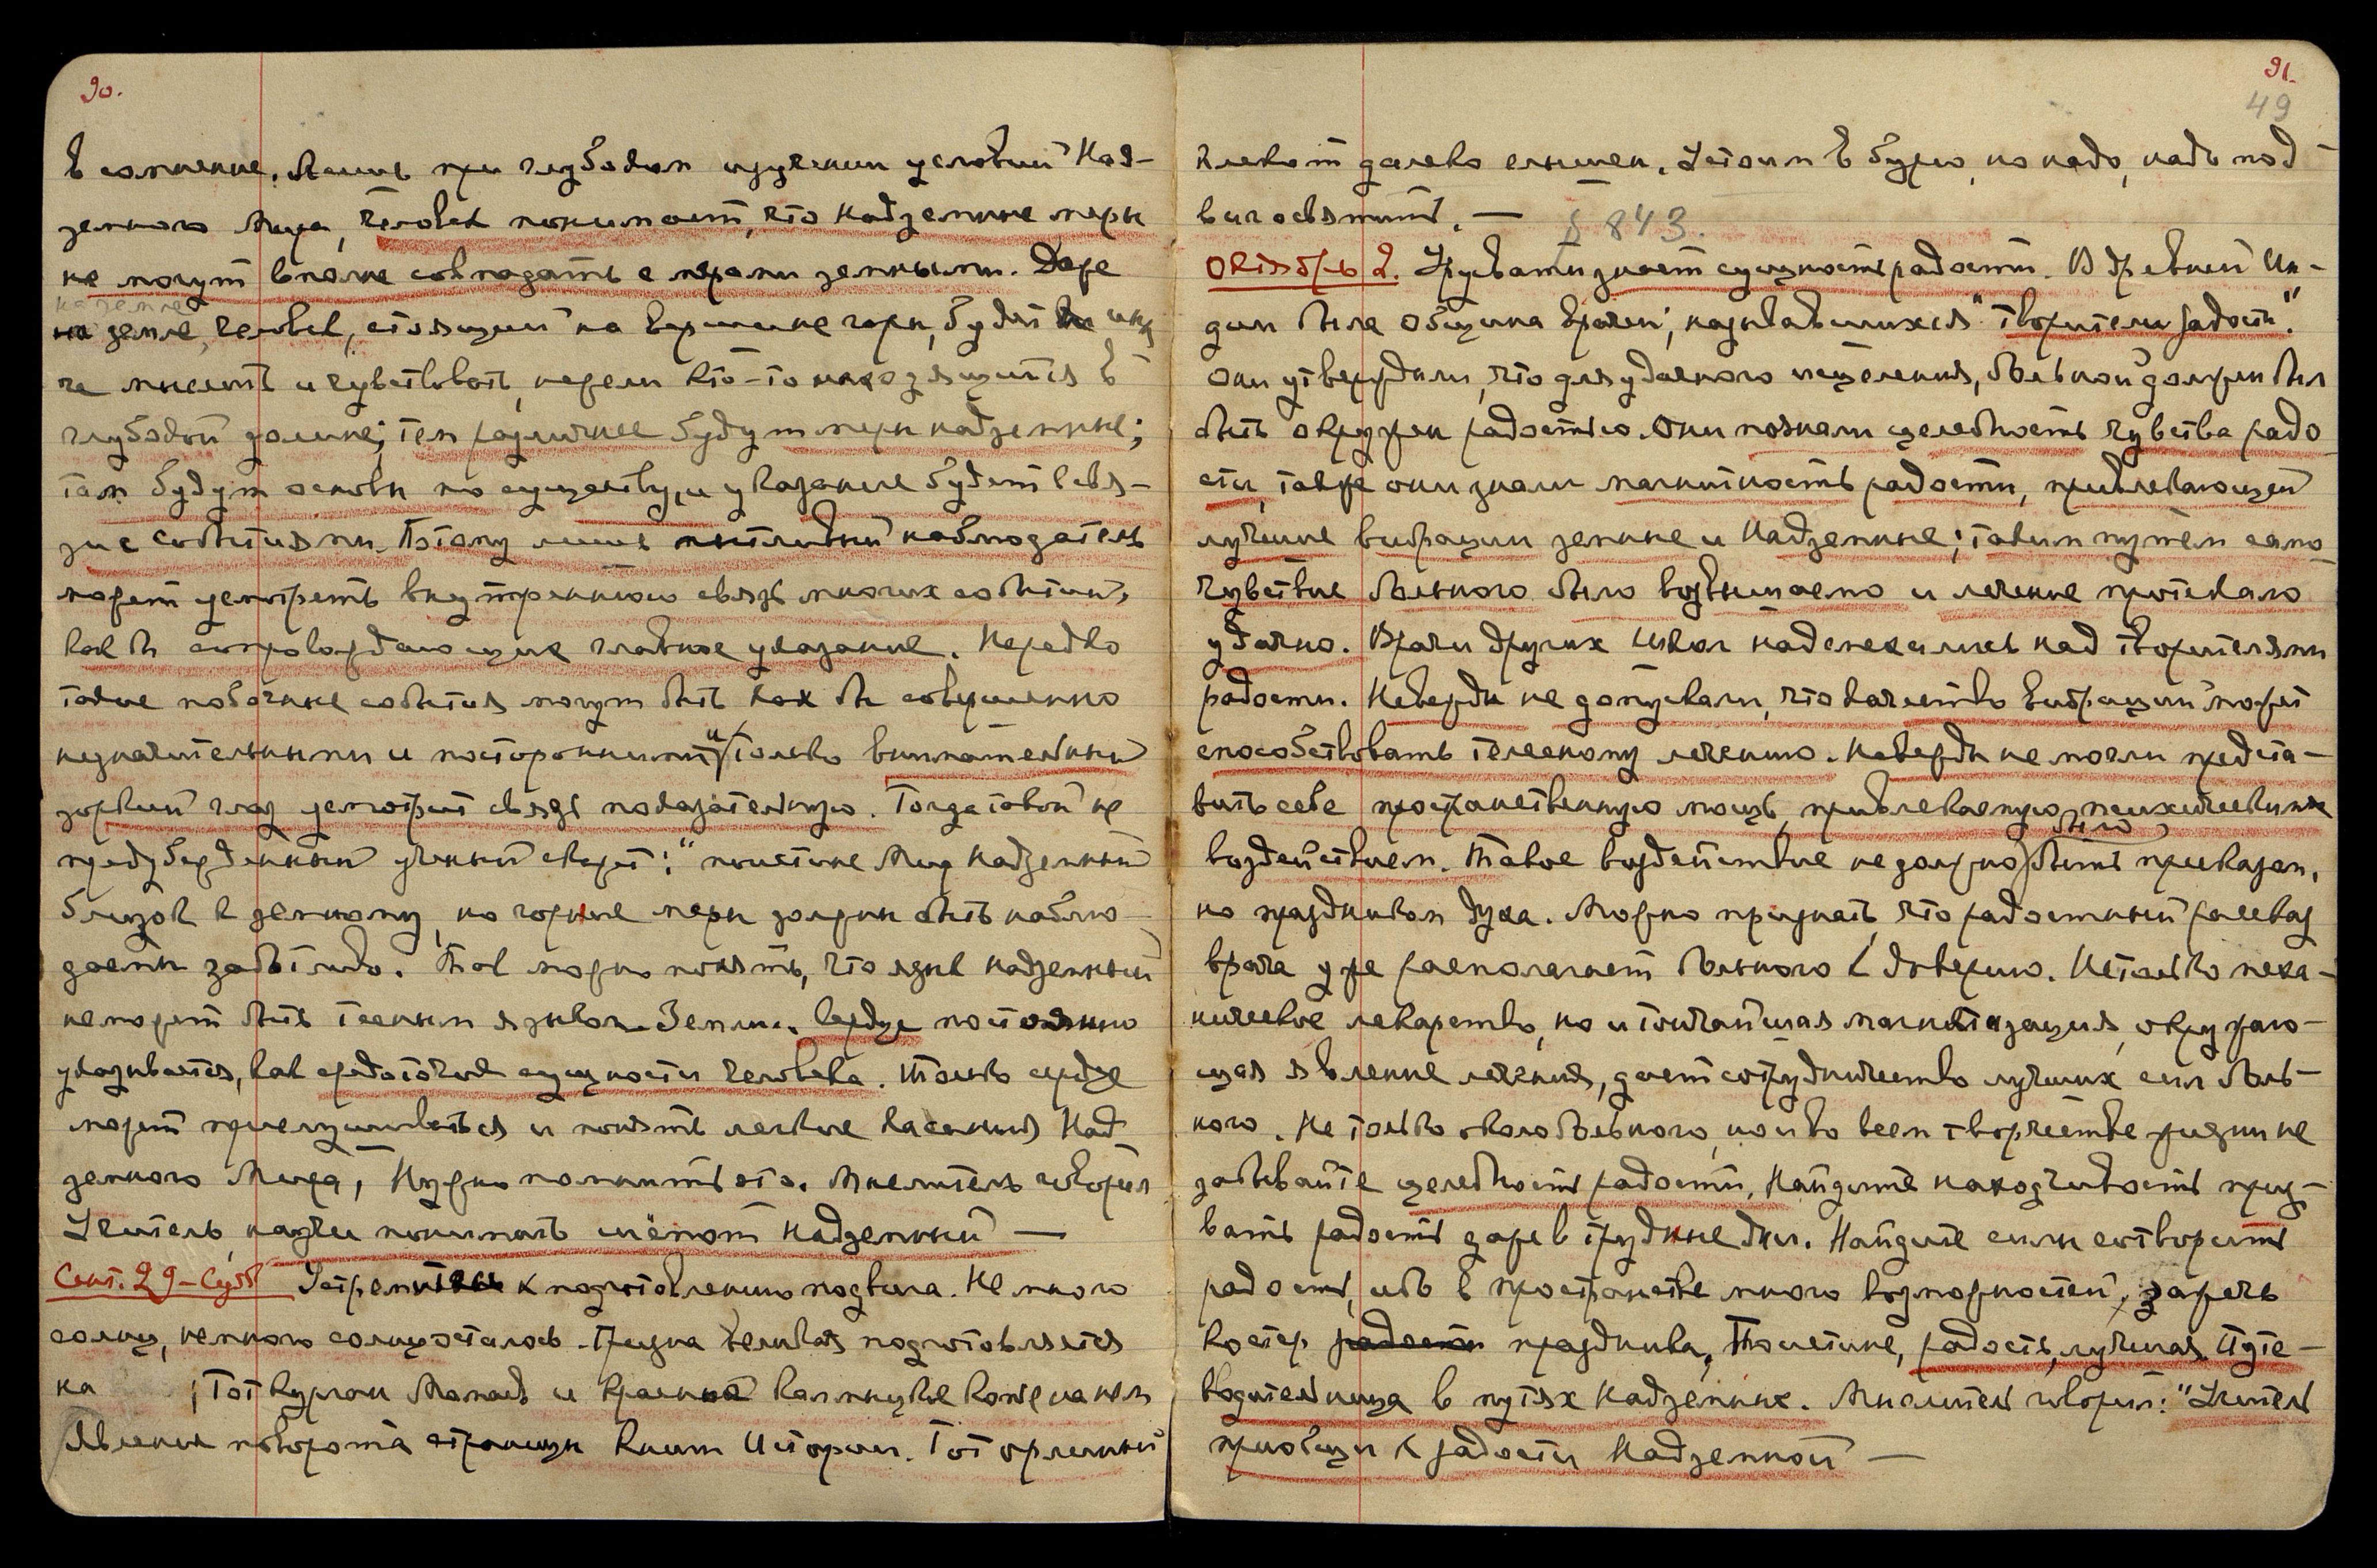 90.
в сомнение. Лишь при глубоком изучении условий Над-
земного Мира, человек понимает, что надземные меры
не могут вполне совпадать с мерами земными. Даже
на земле
на земле, человек, стоящий на вершине горы, будет ина
че мыслить и чувствовать, нежели кто-то находящийся в
глубокой долине; тем различнее будут меры надземные;
там будут основы по существу, и указание будет в свя-
зи с событиями. Потому лишь пытливый наблюдатель
может усмотреть внутреннюю связь многих событий,
как бы сопровождающие главное указание. Нередко
такие побочные события могут быть как бы совершенно
незначительными и посторонними и только внимательный
зоркий глаз усмотрит связь показательную. Тогда такой не
предубежденный ученый скажет: "поистине Мир Надземный
близок к земному, но горние меры должны быть наблю-
даемы заботливо. Так можно понять, что язык надземный
не может быть тесным языком Земли. Сердце постоянно
указывается, как средоточие сущности человека. Только сердце
может прислушиваться и понять легкие касания Над
земного Мира, Нужно помнить это. Мыслитель говорил
Учитель, научи понимать шёпот надземный —
Сент. 29 – Суб. Устремитесь к подготовлению подвига. Не много
солнц, немного солнц осталось. Тризна великая подготовляется
на ; Тот курган Мамая и красная калмыцкие
Явления поворота страницы Книги Истории. Тот орлиный
91.
49
клекот далеко слышен. Устоим в бурю, но надо, надо под
виг освятить. — § 843.
Октябрь 2. Урусвати знает сущность радости. В древней Ин-
дии была община врачей, называвшихся "творители радости".
Они утверждали, что для удачного исцеления, больной должен был
быть окружен радостью. Они познали целебность чувства радо
сти, также они знали магнитность радости, привлекающей
лучшие вибрации земные и Надземные; таким путем само
чувствие больного было возвышаемо и лечение протекало
удачно. Врачи других школ надсмехались над творителями
радости. Невежды не допускали, что качество вибраций может
способствовать телесному лечению. Невежды не могли предста-
вить себе пространственную мощь, привлекаемую психическим
было
воздействием. Такое воздействие не должно быть приказом,
но праздником духа. Можно признать, что радостный рассказ
врача уже располагает больного к доверию. Не только меха-
ническое лекарство, но и тончайшая магнетизация, окружаю-
щая явление лечения, дает сотрудничество лучших сил боль-
ного. Не только около больного, но и во всем творчестве жизни не
забывайте целебность радости, Найдите находчивость приз-
вать радость даже в трудные дни. Найдите силы сотворить
радость, ибо в пространстве много возможностей, зажечь
костер радости праздника, Поистине, радость, лучшая Путе-
водительница в путях надземных. Мыслитель говорил: "Учитель
приобщи к радости Надземной —